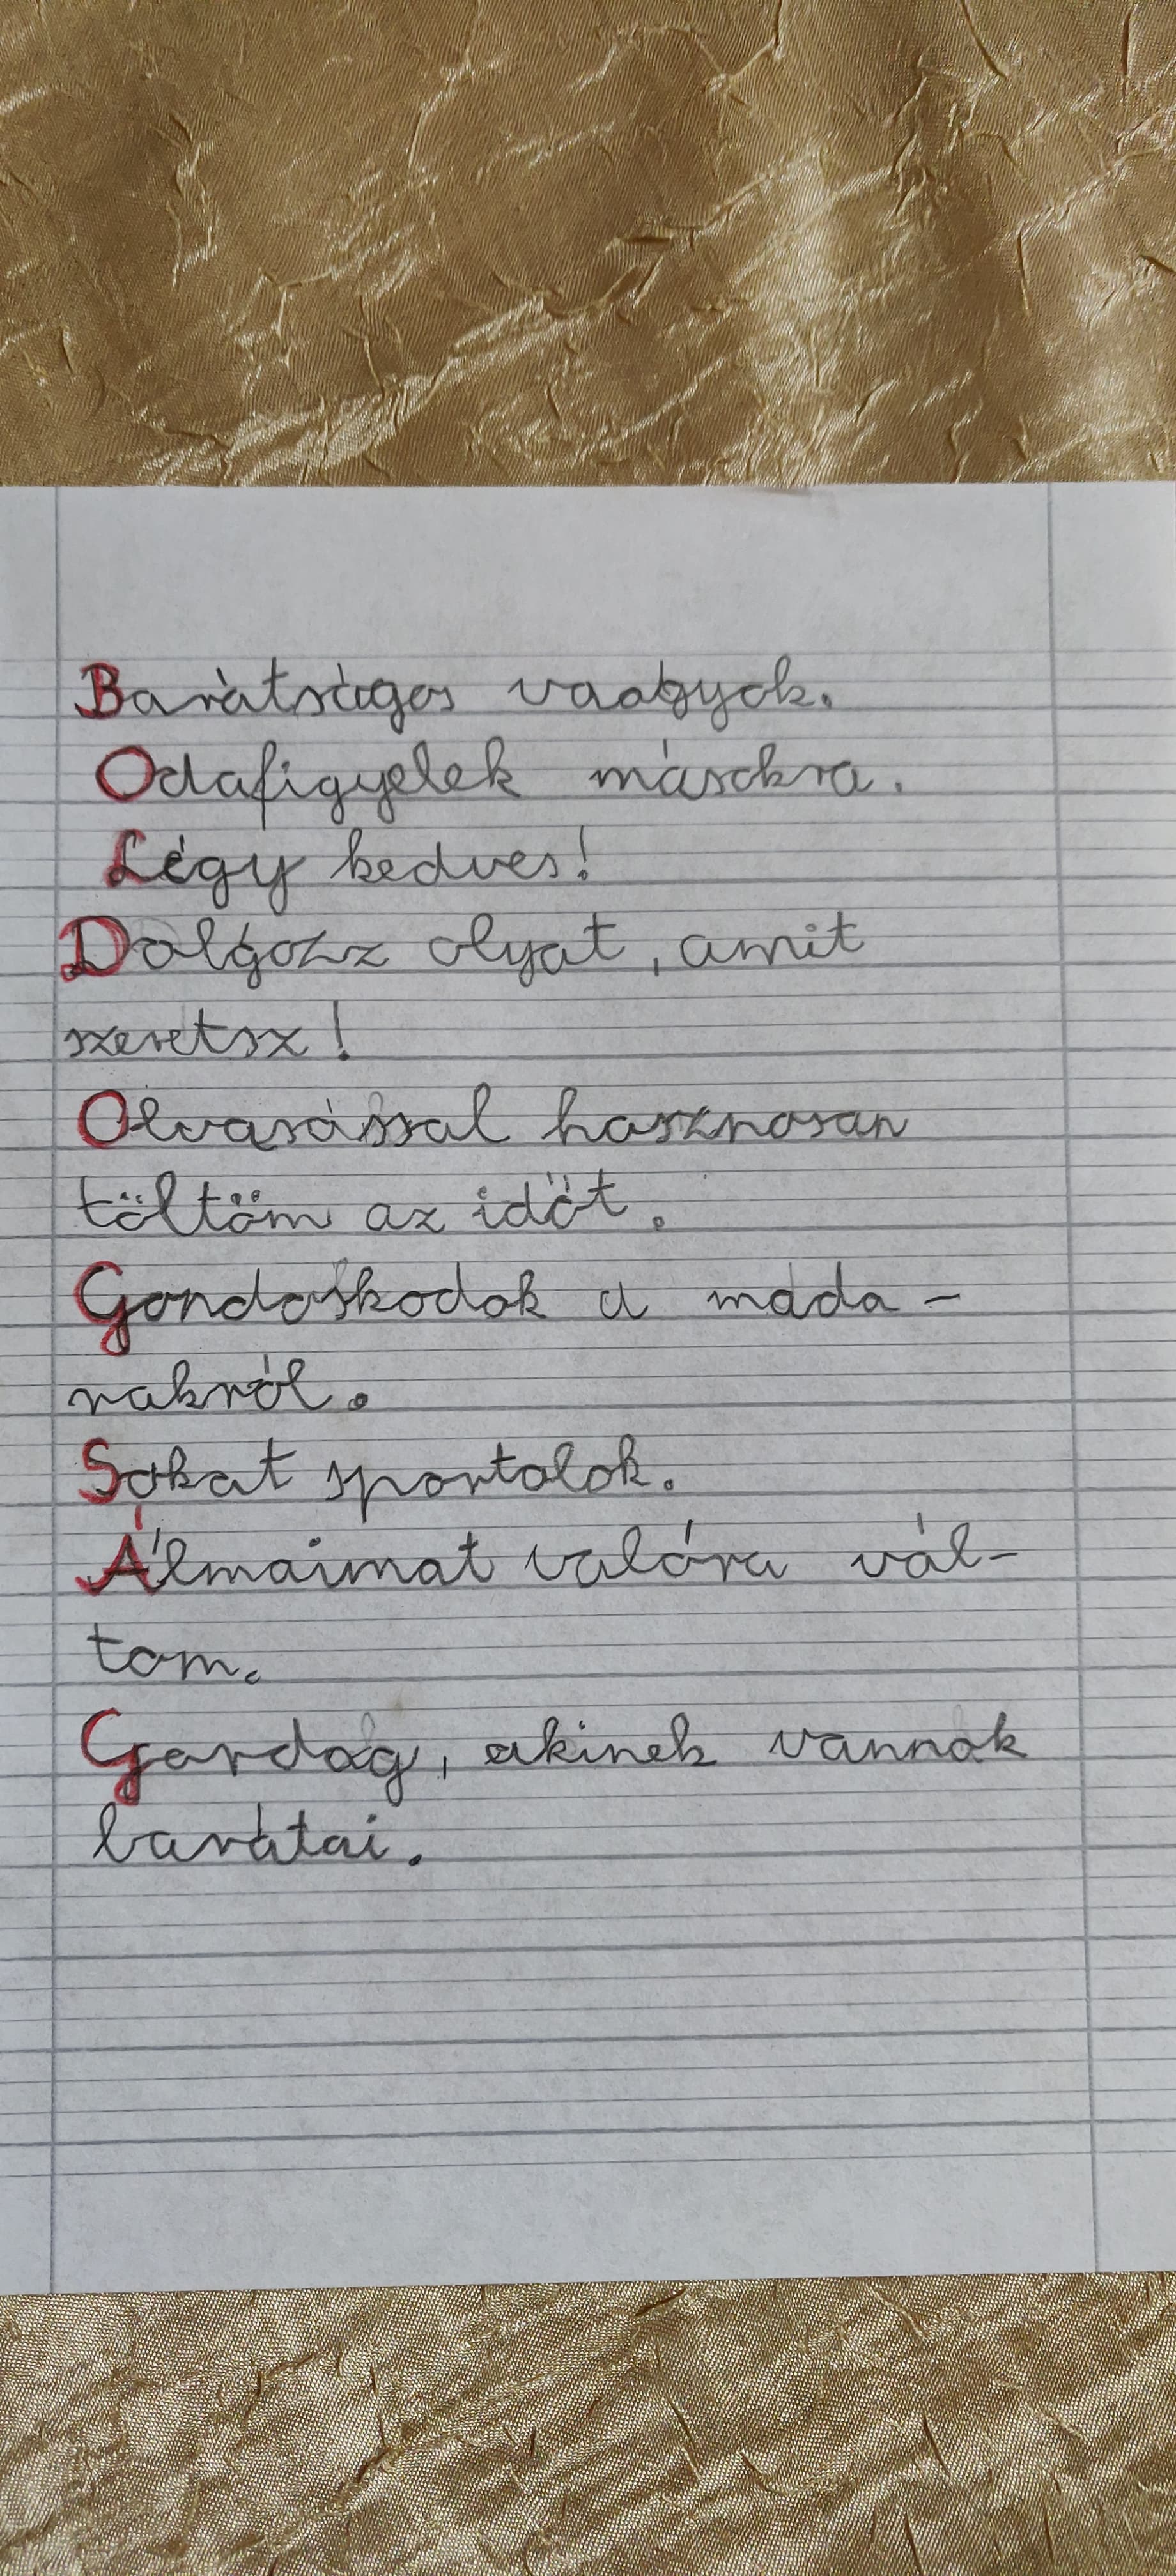 Barátságos vagyok.
Odafigyelek másokra.
Légy kedves!
Dolgozz olyat, amit
szeretsz!
Olvasással hasznosan
töltöm az időt.
Gondoskodok a mada-
rakról.
Sokat sportolok.
Álmaimat valóra vál-
tom.
Gazdag, akinek vannak
barátai.